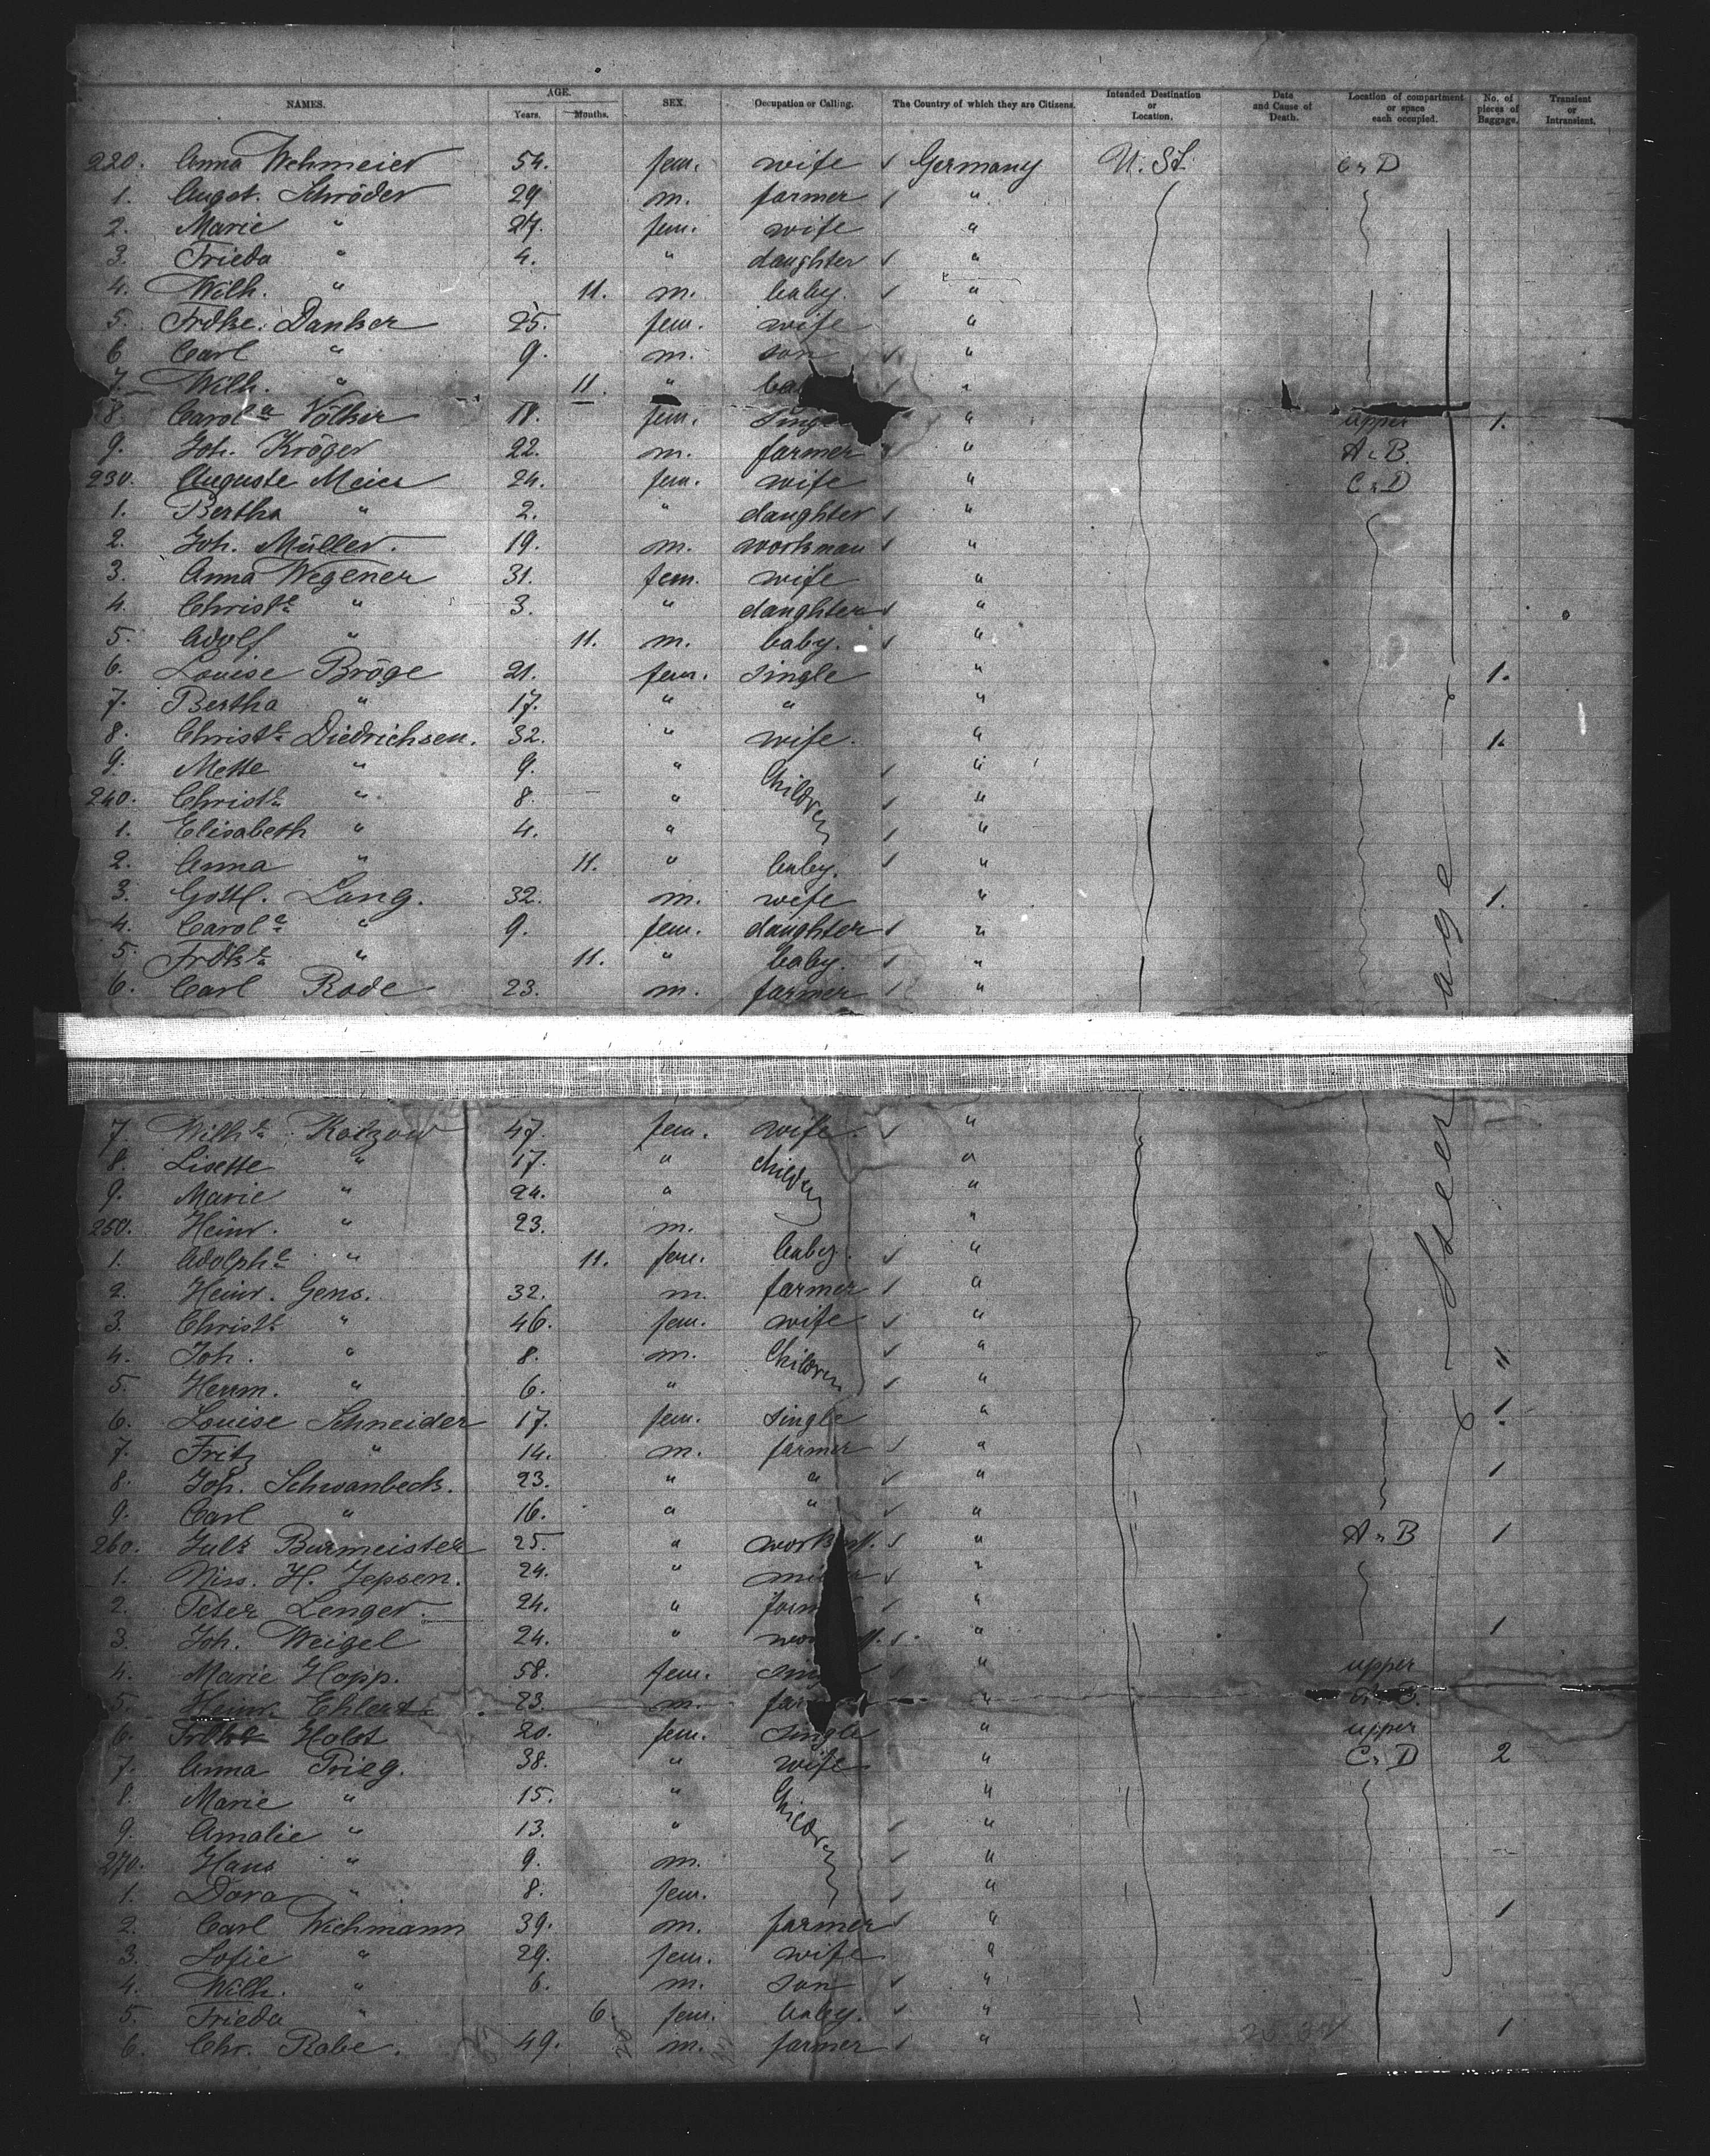 NAMES. AGE. Years. Months. SEX. Occupation or Calling. The Country of which they are Citizens. Intended Destination or Location. Date and Cause of Death. Location of compartment or space each occupied. No. of pieces of Baggage. Transient or Intransient.
220. Anna Wehmeier 54. fem. wife Germany U. St. C & D
1. August. Schröder 29 m. farmer "
2. Marie " 27. fem. wife "
3. Frieda " 4. " daughter "
4. Wilh. " 11. m. baby. "
5. Frdke. Danker 25. fem. wife "
6 Carl " 9. m. son "
7. Wilh. " 11. " "
8 Carole Völker 18. fem. " upper 1.
9. Joh. Kröger 22. m. farmer " A & B.
230. Auguste Meier 24. fem. wife " C & D
1. Bertha " 2. " daughter "
2. Joh. Müller. 19. m. workman "
3. Anna Wegener 31. fem. wife "
4. Christe " 3. " daughter "
5. Adolf " 11. m. baby. "
6. Louise Bröge 21. fem. single " 1.
7. Bertha " 17. " " "
8. Christe Diedrichsen. 32. " wife. " 1.
9. Mette " 9. " Children "
240. Christe " 8. " "
1. Elisabeth " 4. " "
2. Anna " 11. " baby. "
3. Gottl. Lang. 32. m. wife " 1.
4. Carole " 9. fem. daughter "
5. Frdke " 11. " baby. "
6. Carl Rode 23. m. farmer "
Steerage
7 Wilhe Katzow 47. fem. wife. "
8. Lisette " 17. " children "
9. Marie " 24. " "
250. Heinr. " 23. m. "
1. Adolphe " 11. fem. baby. "
2. Heinr. Gens. 32. m. farmer "
3. Christe " 46. fem. wife "
4. Joh. " 8. m. Children " "
5. Herm. " 6. " "
6. Louise Schneider 17. fem. single " 1.
7. Fritz " 14. m. farmer "
8. Joh. Schwanbeck. 23. " " " 1
9. Carl " 16. " " "
260. Juls Burmeister 25. " " A & B 1
1. Niss. H. Jepsen. 24. " "
2. Peter Lenger. 24. " "
3. Joh. Weigel 24. " " 1
4. Marie Hopp. 58. fem. " upper
5. Heinr. Ehlert 23. m. "
6. Holst 20. fem. single " upper
7. Anna Prieg. 38. " wife " C & D 2
8. Marie " 15. " Children "
9. Amalie " 13. " "
270. Hans " 9. m. "
1. Dora " 8. fem. "
2. Carl Wichmann 39. m. farmer " 1
3. Sofie " 29. fem. wife "
4. Wilh. " 6. m. son "
5. Frieda " 6. fem. baby. "
6. Chr. Rabe. 49. m. farmer " 1